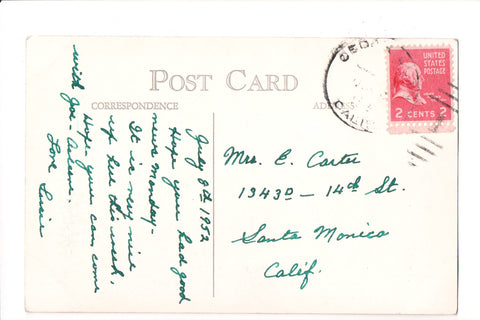 POST CARD
CORRESPONDENCE
CEDA
CALIF
UNITED
STATES
POSTAGE
2 CENTS 2
July 8th 1952
Hope you had good
news Monday -
It is very nice
up here this week,
Hope you can come
with Joe -
Love Susie
Mrs. E. Carter
1343D - 14th St.
Santa Monica
Calif.